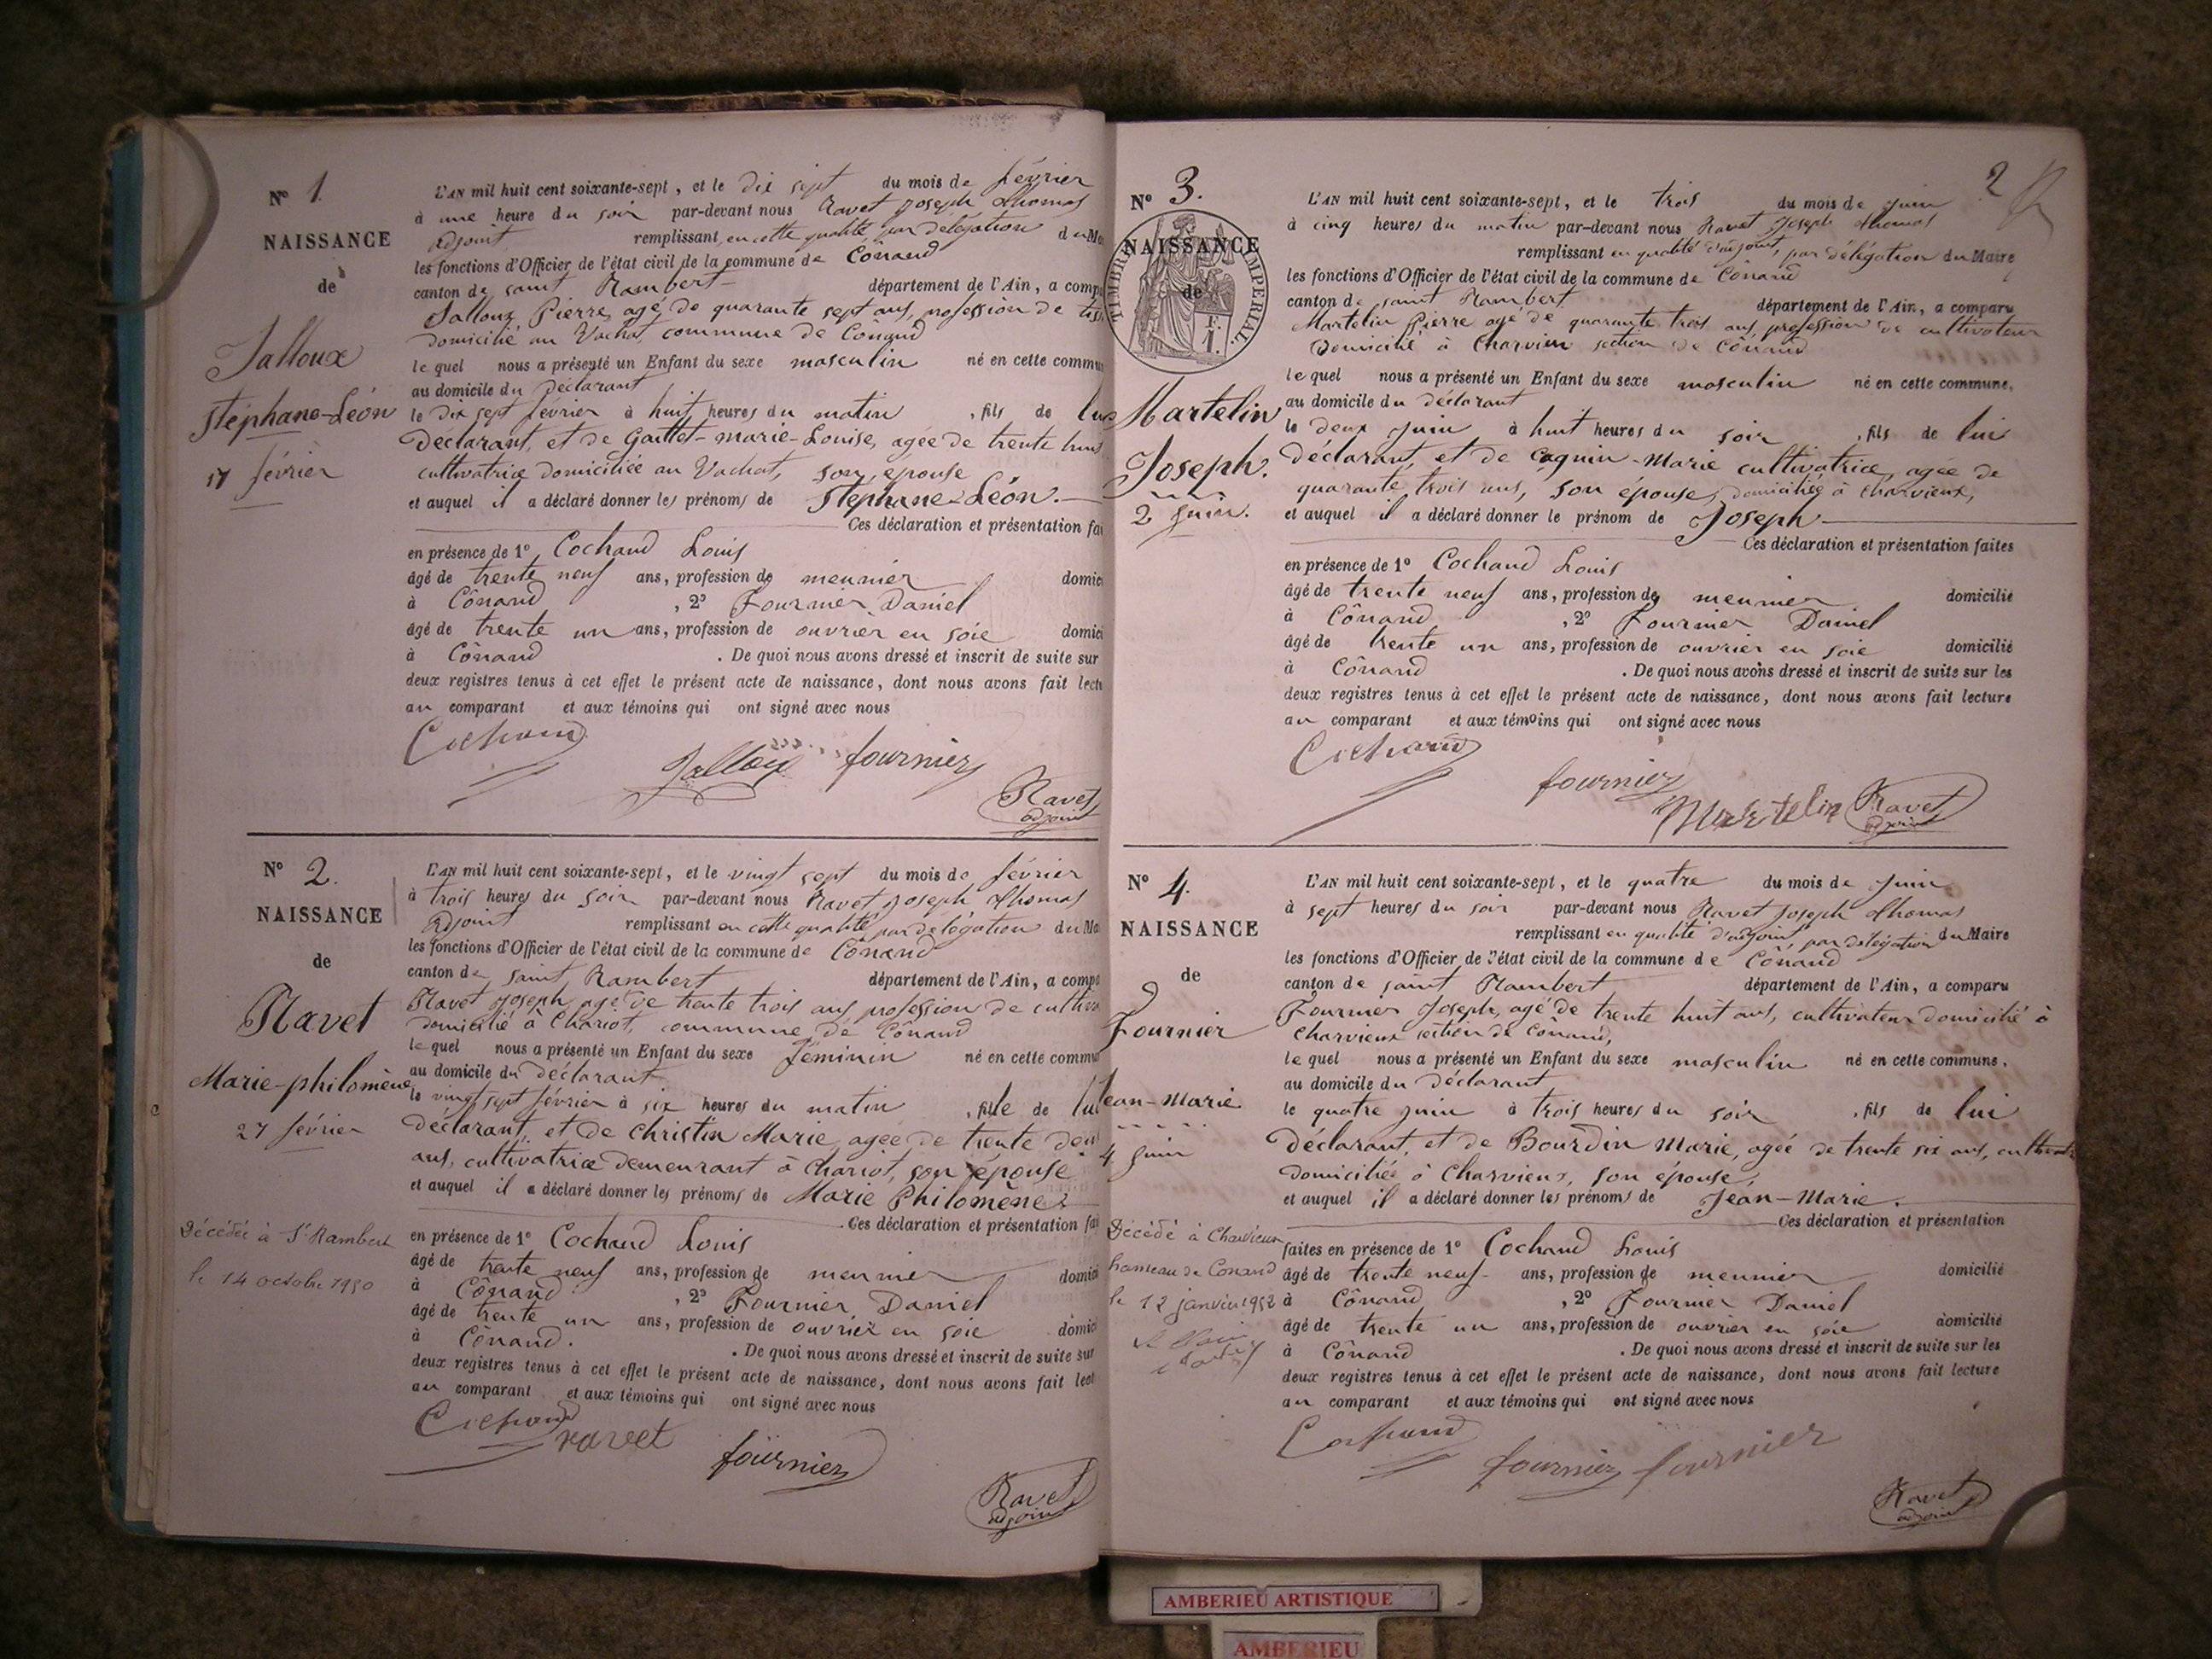 N° 1.
NAISSANCE
de
Jalloux
Stéphane-Léon
17 février
L'AN mil huit cent soixante-sept, et le dix sept du mois de février
à une heure du soir par-devant nous Ravet Joseph Thomas
Adjoint remplissant en cette qualité par délégation du Ma
les fonctions d'Officier de l'état civil de la commune de Cônand
canton de saint Rambert département de l'Ain, a comp
Jalloux Pierre, agé de quarante sept ans, profession de tiss
domicilié au Vachat, commune de Cônand
lequel nous a présenté un Enfant du sexe masculin né en cette commun
au domicile du déclarant
le dix sept février à huit heures du matin, fils de lui
déclarant, et de Gaillet-marie-Louise, agée de trente huit
cultivatrice domiciliée au Vachat, son épouse
et auquel il a déclaré donner les prénoms de Stéphane-Léon.
Ces déclaration et présentation fai
en présence de 1° Cochand Louis
âgé de trente neuf ans, profession de meunier domici
à Cônand, 2° Fournier Daniel
âgé de trente un ans, profession de ouvrier en soie domici
à Cônand. De quoi nous avons dressé et inscrit de suite sur
deux registres tenus à cet effet le présent acte de naissance, dont nous avons fait lectu
au comparant et aux témoins qui ont signé avec nous
Cochand Jalloux fournier
Ravet
adjoint
N° 2.
NAISSANCE
de
Ravet
Marie-philomène
27 février
Décédée à St Rambert
le 14 octobre 1950
L'AN mil huit cent soixante-sept, et le vingt sept du mois de février
à trois heures du soir par-devant nous Ravet Joseph Thomas
Adjoint remplissant en cette qualité par délégation du Ma
les fonctions d'Officier de l'état civil de la commune de Cônand
canton de saint Rambert département de l'Ain, a compa
Ravet Joseph, agé de trente trois ans profession de cultiva
domicilié à Chariot, commune de Cônand
lequel nous a présenté un Enfant du sexe féminin né en cette commun
au domicile du déclarant
le vingt sept février à six heures du matin, fille de lui
déclarant, et de Christin Marie, agée de trente deux
ans, cultivatrice demeurant à Chariot, son épouse
et auquel il a déclaré donner les prénoms de Marie Philomène
Ces déclaration et présentation fai
en présence de 1° Cochand Louis
âgé de trente neuf ans, profession de meunier domici
à Cônand, 2° Fournier Daniel
âgé de trente un ans, profession de ouvrier en soie domici
à Cônand. De quoi nous avons dressé et inscrit de suite sur
deux registres tenus à cet effet le présent acte de naissance, dont nous avons fait lect
au comparant et aux témoins qui ont signé avec nous
Cochand ravet fournier
Ravet
adjoint
2
N° 3.
TIMBRE IMPERIAL.
NAISSANCE
de
Martelin
Joseph.
2 juin.
L'AN mil huit cent soixante-sept, et le trois du mois de juin
à cinq heures du matin par-devant nous Ravet Joseph Thomas
remplissant en qualité d'adjoint, par délégation du Maire
les fonctions d'Officier de l'état civil de la commune de Cônand
canton de saint Rambert département de l'Ain, a comparu
Martelin Pierre agé de quarante trois ans, profession de cultivateur
domicilié à Charvieux section de Cônand
lequel nous a présenté un Enfant du sexe masculin né en cette commune.
au domicile du déclarant
le deux juin à huit heures du soir, fils de lui
déclarant, et de Coguin-Marie cultivatrice, agée de
quarante trois ans, son épouse, domiciliée à Charvieux,
et auquel il a déclaré donner le prénom de Joseph
Ces déclaration et présentation faites
en présence de 1° Cochand Louis
âgé de trente neuf ans, profession de meunier domicilié
à Cônand, 2° Fournier Daniel
âgé de trente un ans, profession de ouvrier en soie domicilié
à Cônand. De quoi nous avons dressé et inscrit de suite sur les
deux registres tenus à cet effet le présent acte de naissance, dont nous avons fait lecture
au comparant et aux témoins qui ont signé avec nous
Cochand
fournier
Martelin Ravet
adjoint
N° 4.
NAISSANCE
de
Fournier
Jean-Marie
4 juin
Décédé à Charvieux
hameau de Conand
le 12 janvier 1952
L'AN mil huit cent soixante-sept, et le quatre du mois de juin
à sept heures du soir par-devant nous Ravet Joseph Thomas
remplissant en qualité d'adjoint par délégation du Maire
les fonctions d'Officier de l'état civil de la commune de Cônand
canton de saint Rambert département de l'Ain, a comparu
Fournier Joseph, agé de trente huit ans, cultivateur domicilié à
Charvieux section de Conand,
lequel nous a présenté un Enfant du sexe masculin né en cette commune.
au domicile du déclarant
le quatre juin à trois heures du soir, fils de lui
déclarant, et de Bourdin Marie, agée de trente six ans, cultivatr
domiciliée à Charvieux, son épouse,
et auquel il a déclaré donner les prénoms de Jean-Marie.
Ces déclaration et présentation
faites en présence de 1° Cochand Louis
âgé de trente neuf ans, profession de meunier domicilié
à Cônand, 2° Fournier Daniel
âgé de trente un ans, profession de ouvrier en soie domicilié
à Cônand. De quoi nous avons dressé et inscrit de suite sur les
deux registres tenus à cet effet le présent acte de naissance, dont nous avons fait lecture
au comparant et aux témoins qui ont signé avec nous
Cochand
fournier fournier
Ravet
adjoint
AMBERIEU ARTISTIQUE
AMBERIEU